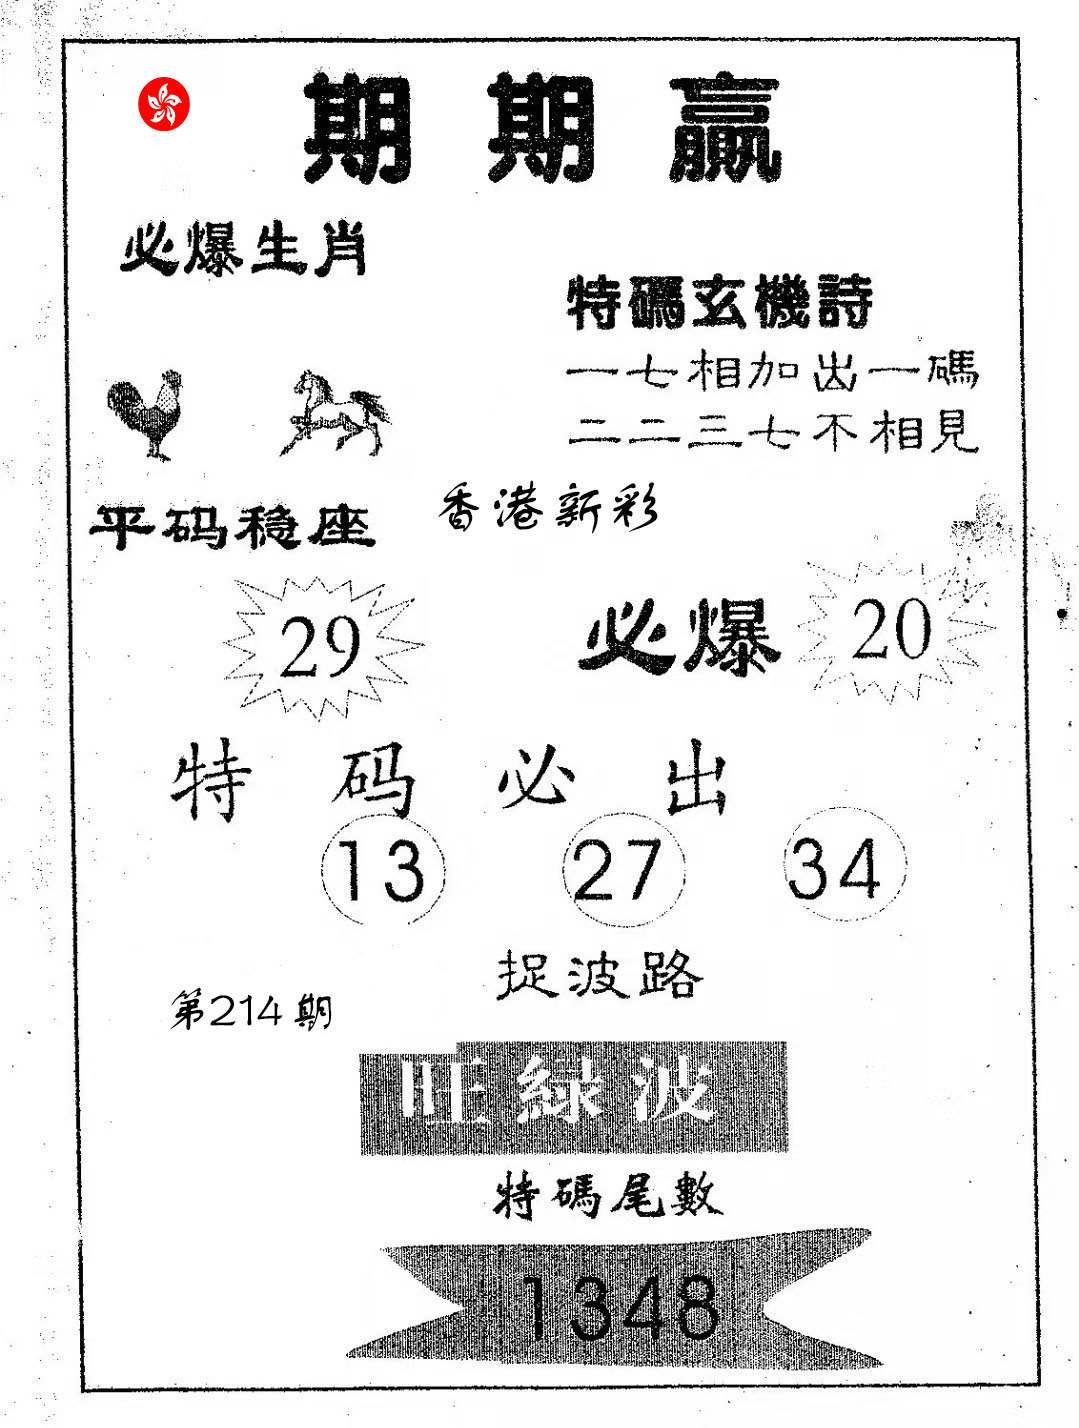 期期贏
必爆生肖
特碼玄機詩
一七相加出一碼
二二三七不相見
平码稳座
香港新彩
29
必爆 20
特码必出
13 27 34
捉波路
第214期
旺緑波
特碼尾數
1348